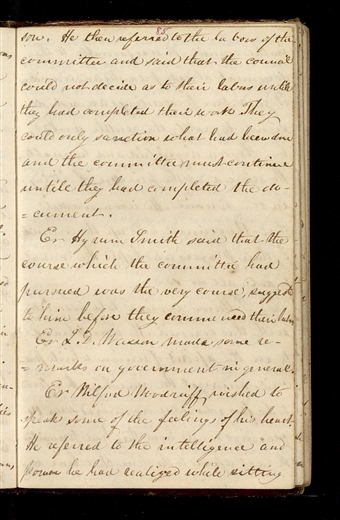 85
son. He then referred to the labors of the
committee and said that the council
could not decide as to their labors untile
they had completed their work They
could only sanction what had been done
and the committee must continue
untile they had completed the do-
=cument.
Er Hyrum Smith said that the
course which the committee had
pursued was the very course, suggest
to him before they commenced their labor
Er L. D. Wasson made some re-
=marks on government in general.
Er Wilford Woodruff wished to
speak some of the feelings of his heart.
He referred to the intelligence and
power he had realized while sitting